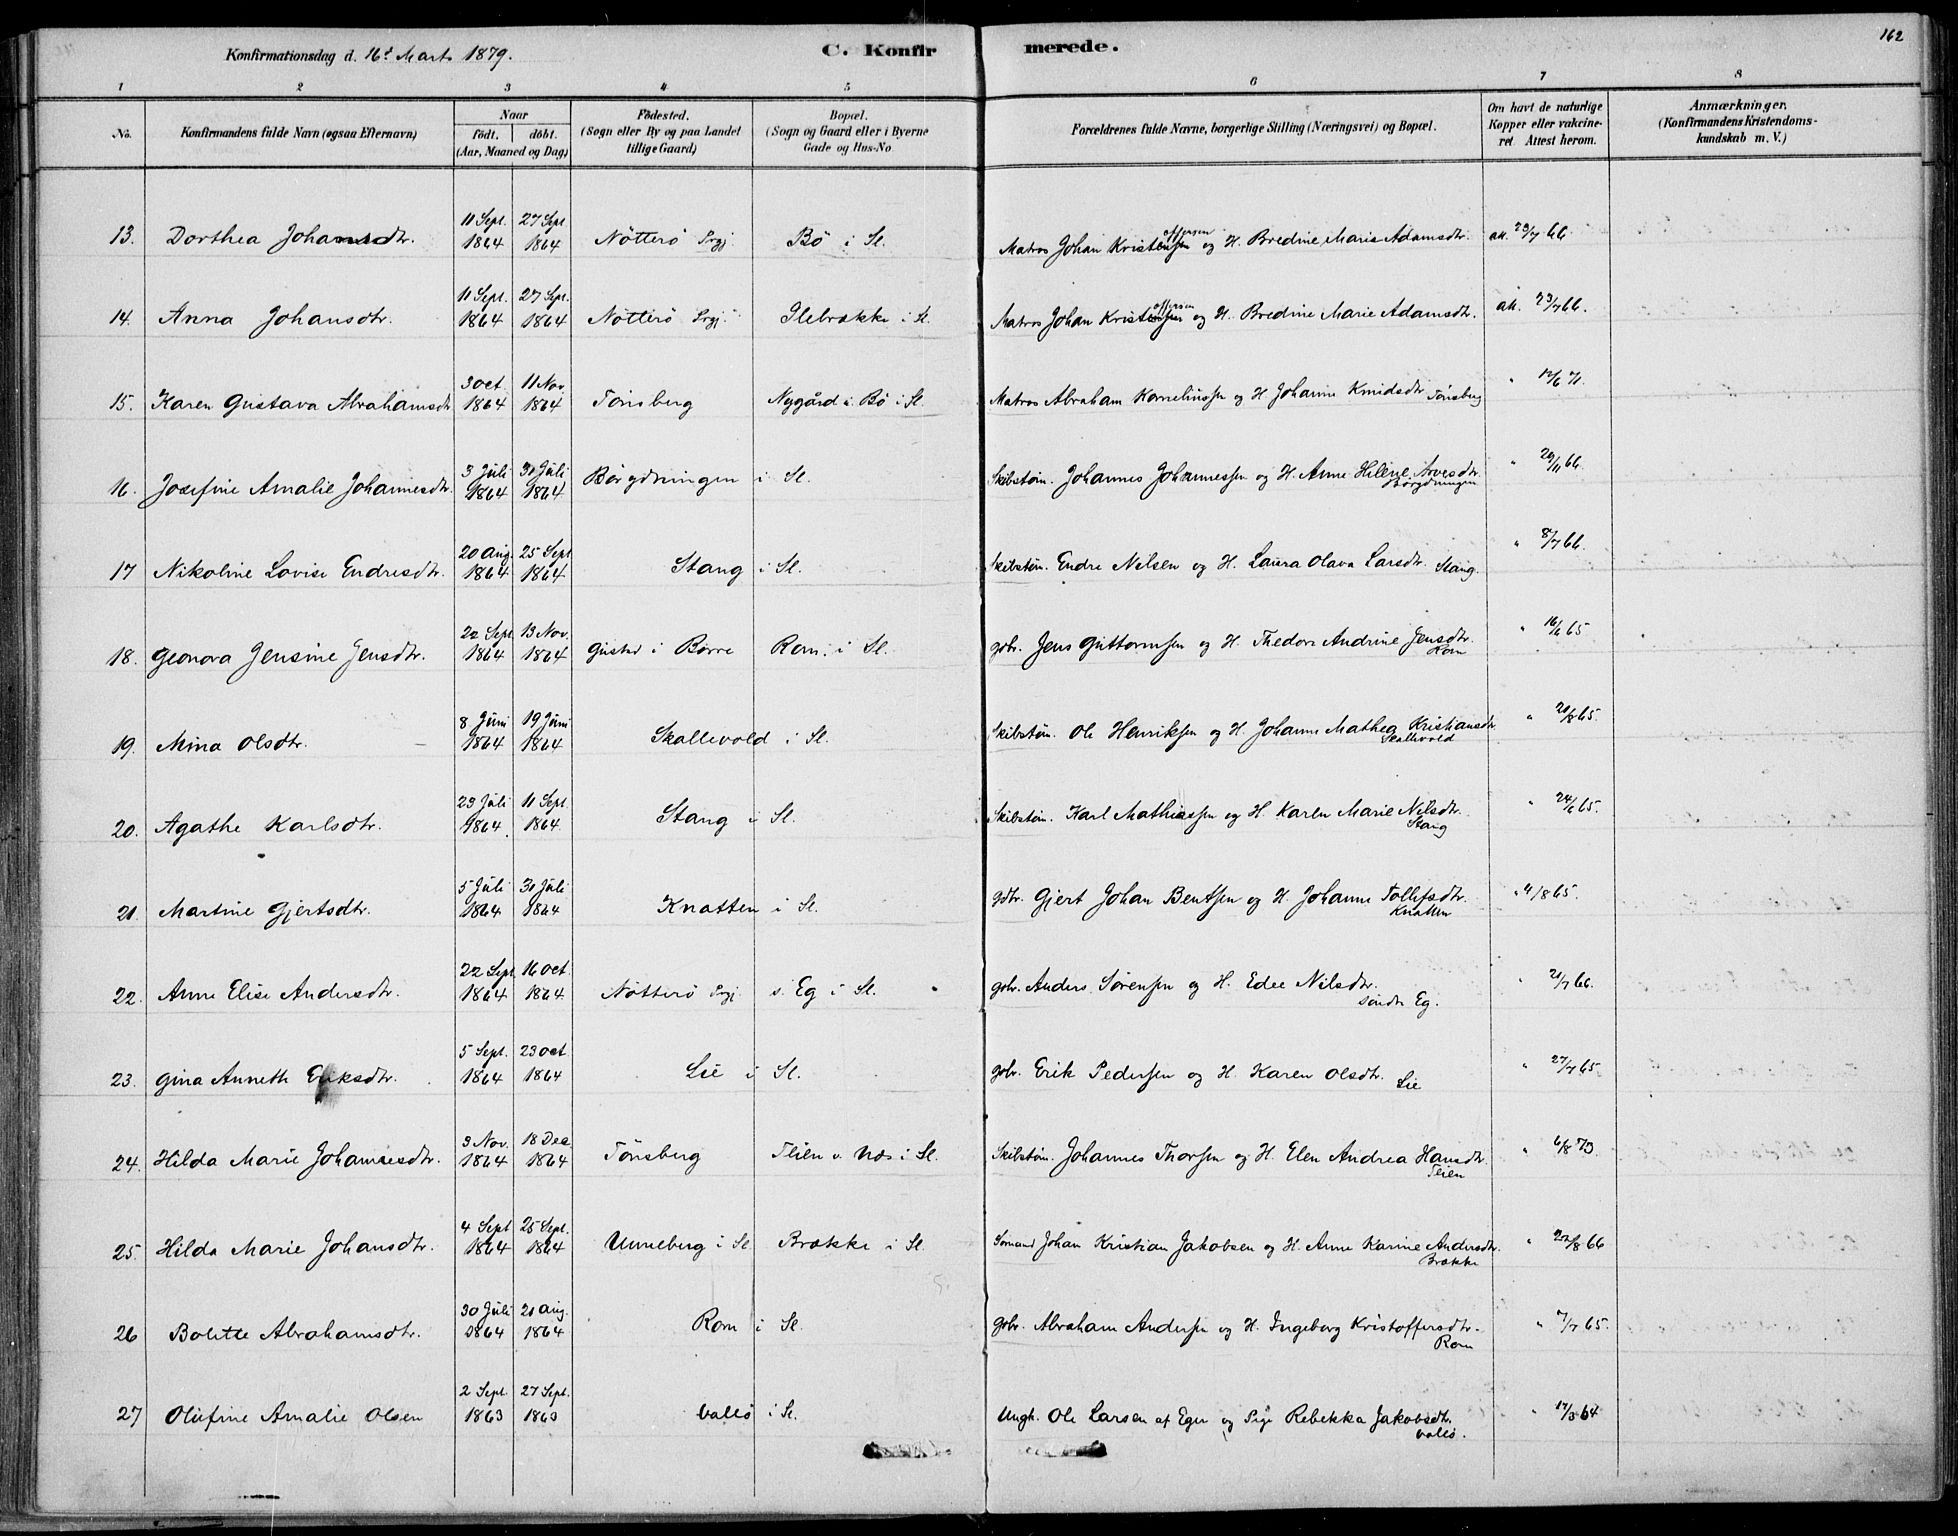 162
Konfirmationsdag d. 16t Marts 1879.
C. Konfirmerede.
1 2 3 4 5 6 7 8
No.
Konfirmandens fulde Navn (ogsaa Efternavn)
Naar
födt. döbt.
(Aar, Maaned og Dag)
Födested.
(Sogn eller By og paa Landet
tillige Gaard)
Bopæl.
(Sogn og Gaard eller i Byerne
Gade og Hus-No.
Forældrenes fulde Navne, borgerlige Stilling (Næringsvei) og Bopæl.
Om havt de naturlige
Kopper eller vakcine-
ret Attest herom.
Anmærkninger.
(Konfirmandens Kristendoms-
kundskab m. V.)
13. Dorthea Johansdtr. 11 Sept. 1864 27 Sept 1864 Nötterö Prgj. Bö i Sl. Matros Johan Kristoffersen og H. Bredine Marie Adamsdtr. att. 23/7 66
14. Anna Johansdtr. 11 Sept. 1864 27 Sept. 1864 Nötterö Prgj. Ilebrække i Sl. Matros Johan Kristoffersen og H. Bredine Marie Adamsdtr. att. 23/7 66.
15. Karen Gustava Abrahamsdtr 3 Oct. 1864 11 Nov 1864 Tönsberg Nygård i Bö i Sl. Matros Abraham Kornelinssen og H Johanne Knudsdtr Tönsberg " 12/6 71.
16. Josefine Amalie Johannesdtr. 3 Juli 1864 31 Juli 1864 Börgdningen i Sl. Skibstöm. Johannes Johannessen og H. Anne Helene Arvesdtr. Börgdningen " 29/11 66.
17 Nikoline Lovise Endresdtr. 20 Aug. 1864 25 Sept 1864 Stang i Sl. Skibstöm. Endre Nilsen og H. Laura Olava Larsdtr. Stang. " 8/7 66.
18. Geonora Jensine Jensdtr. 22 Sept. 1864 13 Nov. 1864 Gusted i Borre Rom i Sl. gbr. Jens Guttormsen og H. Thedora Andrine Jensdtr. Rom " 16/6 65
19. Mina Olsdtr. 8 Juni 1864 19 Juni 1864 Skallevold i Sl. Skibstöm. Ole Henriksen og H. Johanne Mathea Kristiansdtr Skallevold " 20/8 65.
20. Agathe Karlsdtr. 23 Juli 1864. 11 Sept. 1864 Stang i Sl. Skibstöm. Karl Mathiassen og H. Karen Marie Nilsdtr. Stang " 24/6 65.
21. Martine Gjertsdtr. 5 Juli 1864 31 Juli 1864 Knatten i Sl. gbr. Gjert Johan Bentsen og H. Johanne Tollefsdtr. Knatten " 4/8 65.
22. Anne Elise Andersdtr. 22 Sept. 1864 16 Oct. 1864 Nötterö Prgj. s. Eg i Sl. gbr. Anders Sörensen og H. Edee Nilsdtr. söndre Eg. " 21/7 66.
23. Gina Anneth Eriksdtr. 5 Sept. 1864 23 Oct 1864 Lie i Sl. gbr. Erik Pedersen og H. Karen Olsdtr. Lie " 27/7 65.
24. Hilda Marie Johannesdtr. 3 Nov. 1864 18 Dec 1864 Tönsberg Teien v. Næs i Sl. Skibstöm. Johannes Thorsen og H. Elen Andrea Hansdtr. Teien " 6/8 73.
25. Hilda Marie Johansdtr. 4 Sept 1864 25 Sept. 1864 Unneberg i Sl. Brække i Sl. Sömand Johan Kristian Jakobsen og H. Anne Karine Andersdtr. Brække " 22/8 66
26 Bolette Abrahamsdtr. 30 Juli 1864 21 Aug. 1864 Rom i Sl. gbr. Abraham Andersen og H. Ingeborg Kristoffersdtr. Rom " 7/7 65.
27 Olufine Amalie Olsen 2 Sept. 1863 27 Sept. 1863 Vallö i Sl. Ungk. Ole Larsen af Eger og Pige Rebekka Jakobsdtr. Vallö. " 17/3 64